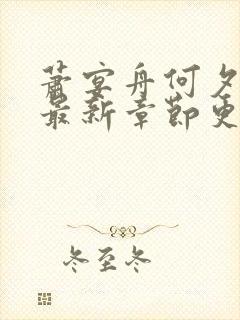 萧宴舟何夕
最新章节更
冬至冬